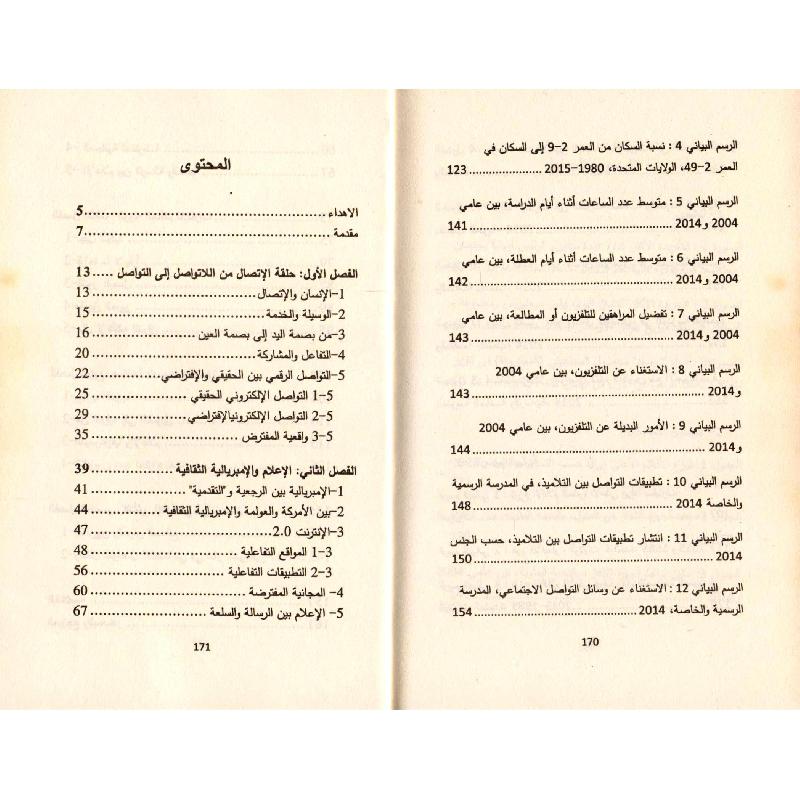 الرسم البياني 4 : نسبة السكان من العمر 2–9 إلى السكان في
العمر 2–49، الولايات المتحدة، 1980–2015 .................... 123
الرسم البياني 5 : متوسط عدد الساعات أثناء أيام الدراسة، بين عامي
2004 و2014 .................... 141
الرسم البياني 6 : متوسط عدد الساعات أثناء أيام العطلة، بين عامي
2004 و2014 .................... 142
الرسم البياني 7 : تفضيل المراهقين للتلفزيون أو المطالعة، بين عامي
2004 و2014 .................... 143
الرسم البياني 8 : الاستغناء عن التلفزيون، بين عامي 2004
و2014 .................... 143
الرسم البياني 9 : الأمور البديلة عن التلفزيون، بين عامي 2004
و2014 .................... 144
الرسم البياني 10 : تطبيقات التواصل بين التلاميذ، في المدرسة الرسمية
والخاصة 2014 .................... 148
الرسم البياني 11 : انتشار تطبيقات التواصل بين التلاميذ، حسب الجنس
2014 .................... 150
الرسم البياني 12 : الاستغناء عن وسائل التواصل الاجتماعي، المدرسة
الرسمية والخاصة، 2014 .................... 154
170
المحتوى
الاهداء .................... 5
مقدمة .................... 7
الفصل الأول: حلقة الإتصال من اللاتواصل إلى التواصل ..... 13
1–الإنسان والإتصال .................... 13
2–الوسيلة والخدمة .................... 15
3–من بصمة اليد إلى بصمة العين .................... 16
4–التفاعل والمشاركة .................... 20
5–التواصل الرقمي بين الحقيقي والإفتراضي .................... 22
5–1 التواصل الإلكتروني الحقيقي .................... 25
5–2 التواصل الإلكترونيالإفتراضي .................... 29
5–3 واقعية المفترض .................... 35
الفصل الثاني: الإعلام والإمبريالية الثقافية .................... 39
1–الإمبريالية بين الرجعية و"التقدمية" .................... 41
2–بين الأمركة والعولمة والإمبريالية الثقافية .................... 44
3–الإنترنت 2.0 .................... 47
3–1 المواقع التفاعلية .................... 48
3–2 التطبيقات التفاعلية .................... 56
4– المجانية المفترضة .................... 60
5– الإعلام بين الرسالة والسلعة .................... 67
171